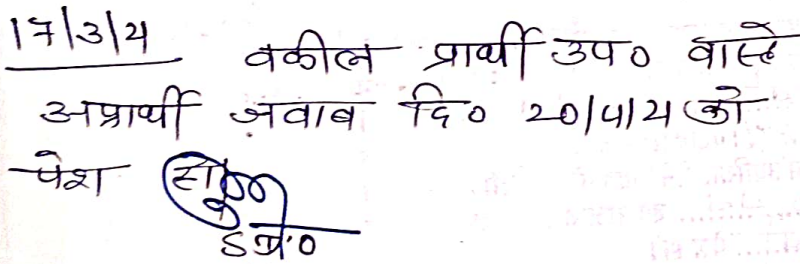 17/3/24 वकील प्रार्थी उप० वास्ते
अप्रार्थी जवाब दि० 20/4/24 को
पेश